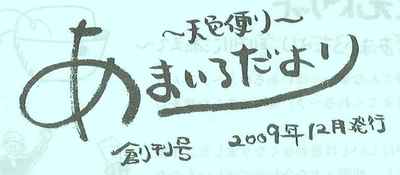 ～天色便り～
あまいろだより
創刊号 2009年12月発行